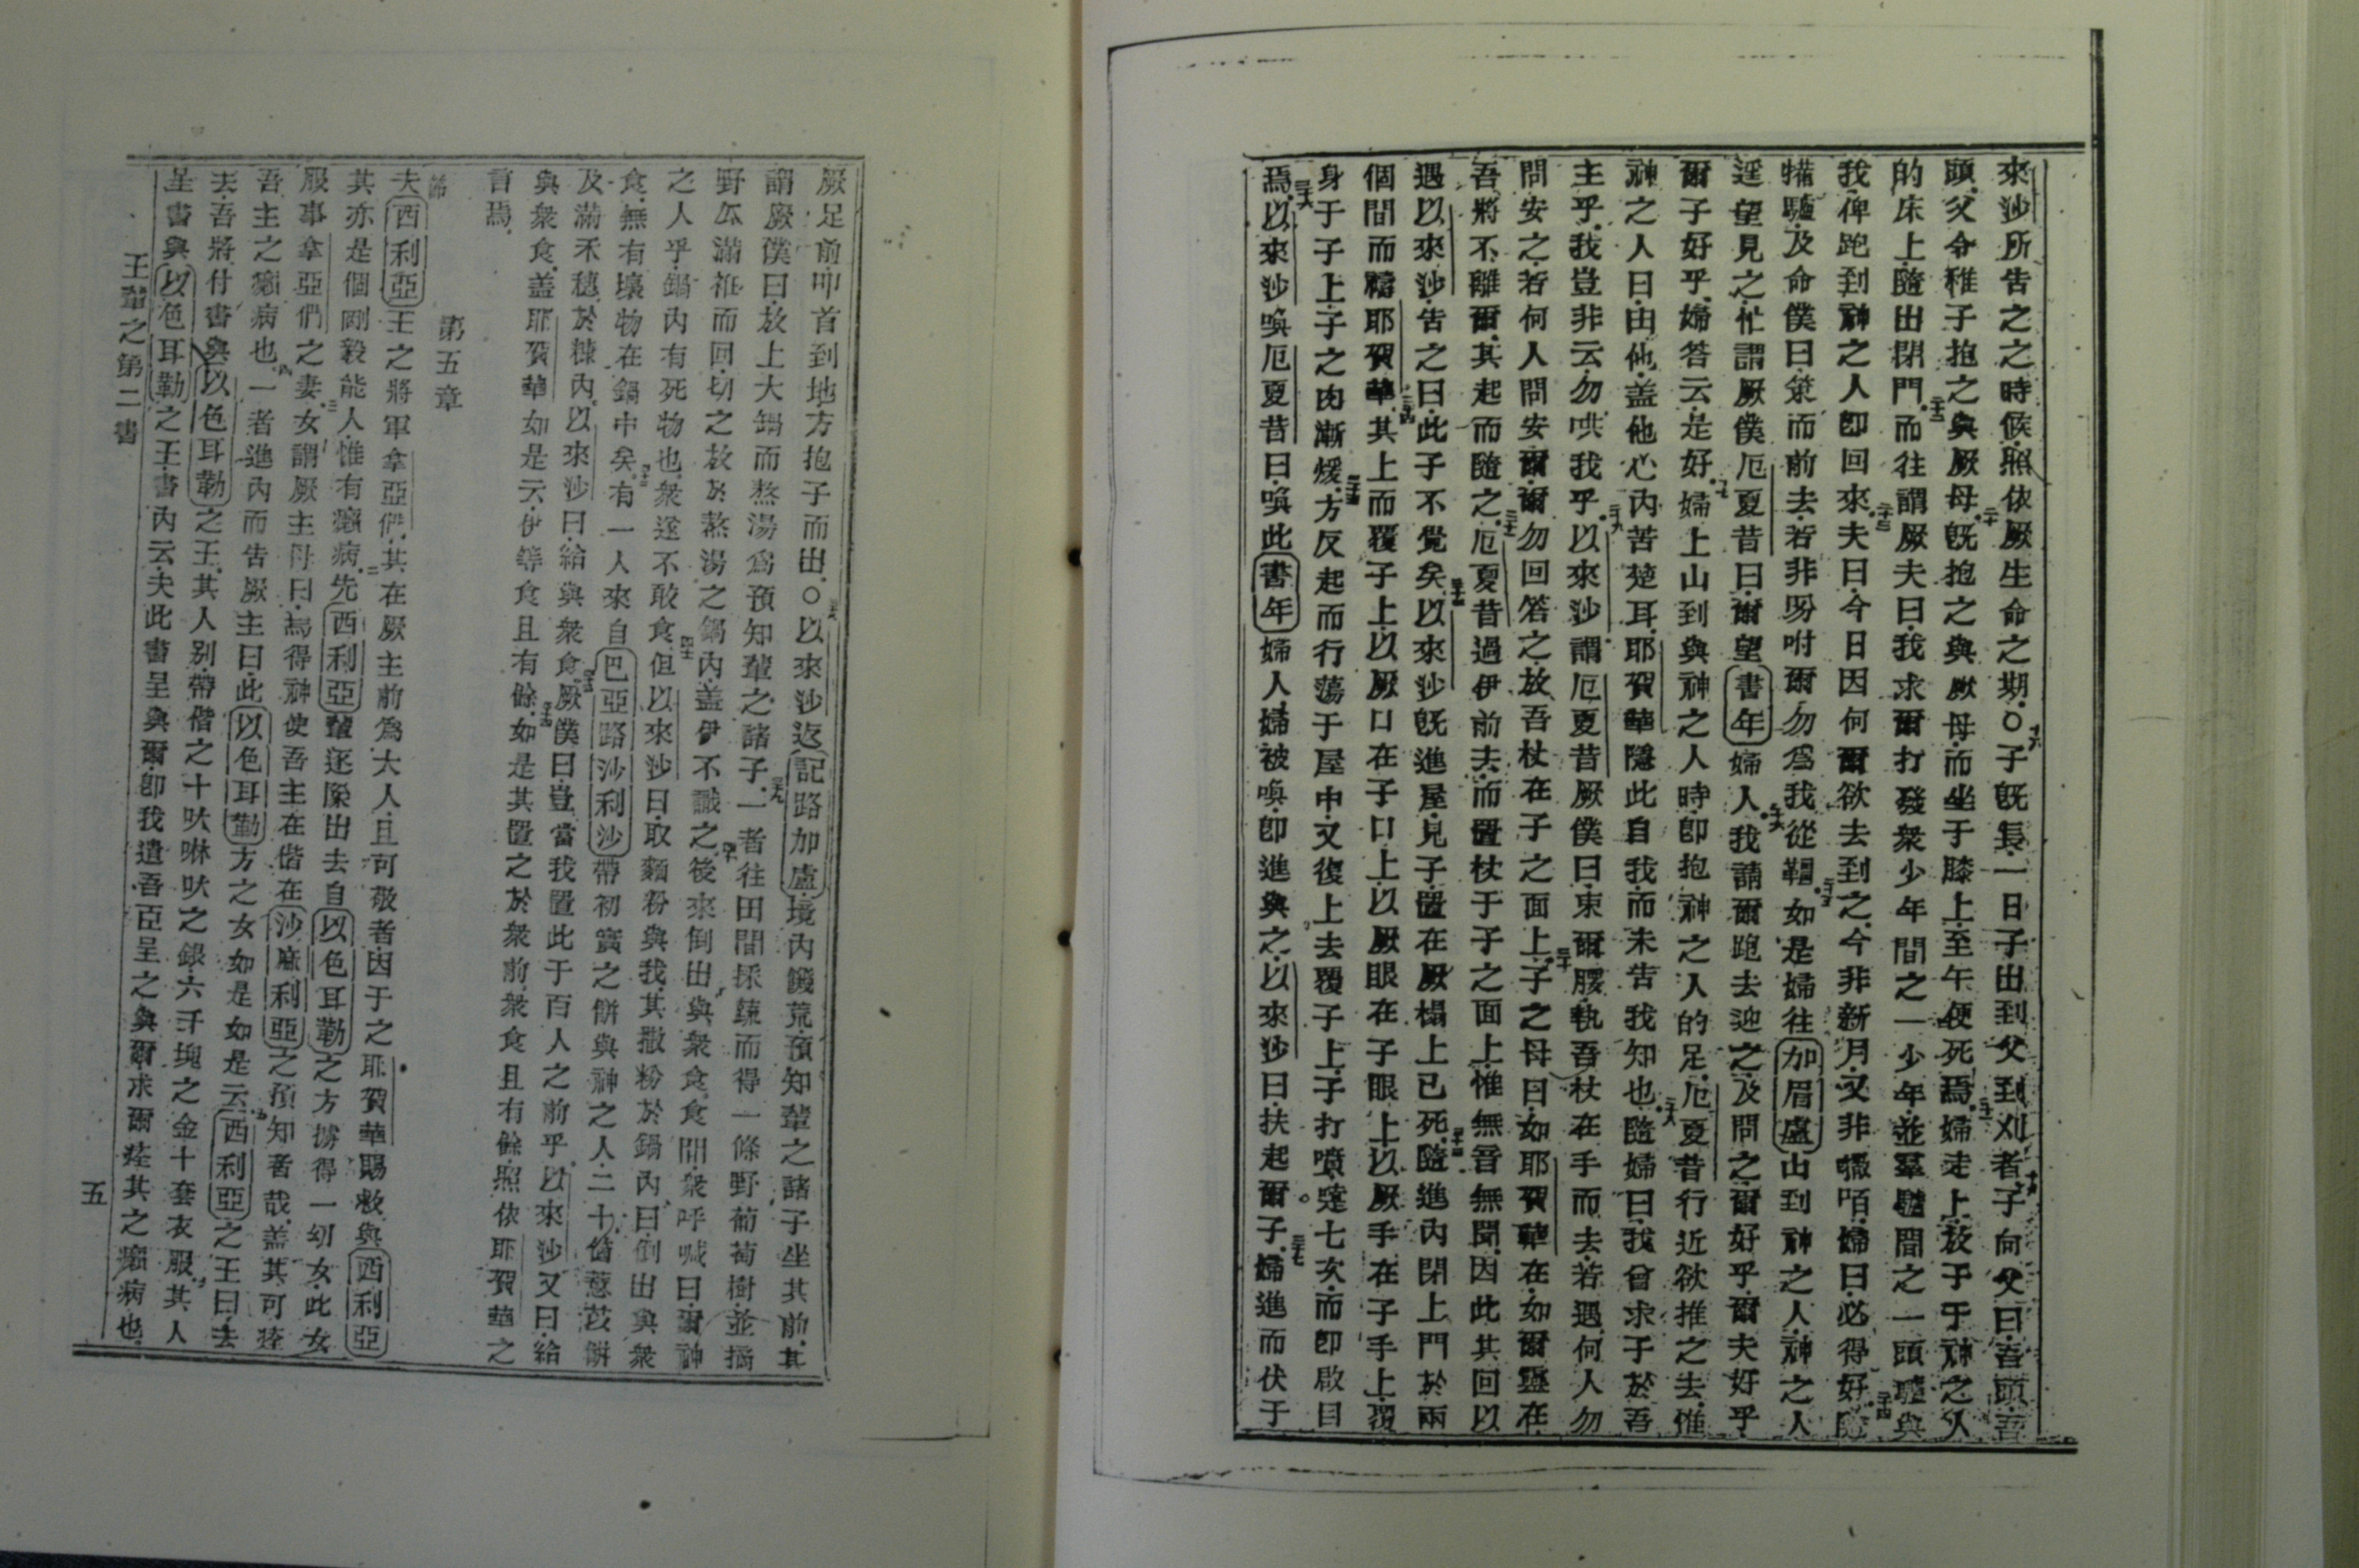 來沙所告之之時候照依厥生命之期○十八子旣長一日子出到父到刈者十九子向父曰吾頭吾
頭父令稚子抱之與厥母二十旣抱之與厥母而坐于膝上至午便死焉二十一婦走上放于于神之人
的床上隨出閉門二十二而往謂厥夫曰我求爾打發衆少年間之一少年並羣驢間之一頭驢與
我俾跑到神之人卽回來二十三夫曰今日因何爾欲去到之今非新月又非㘔咟婦曰必得好二十四隨
犕驢及命僕曰策而前去若非吩咐爾勿爲我從韁二十五如是婦往加眉盧山到神之人神之人
遥望見之忙謂厥僕厄夏昔曰爾望書年婦人二十六我請爾跑去迎之及問之爾好乎爾夫好乎
爾子好乎婦答云是好二十七婦上山到與神之人時卽抱神之人的足厄夏昔行近欲推之去惟
神之人曰由他蓋他心內苦楚耳耶賀華隱此自我而未告我知也二十八隨婦曰我曾求子於吾
主乎我豈非云勿哄我乎二十九以來沙謂厄夏昔厥僕曰束爾腰執吾杖在手而去若遇何人勿
問安之若何人問安爾爾勿回答之放吾杖在子之面上三十子之母曰如耶賀華在如爾靈在
吾將不離爾其起而隨之三十一厄夏昔過伊前去而置杖于子之面上惟無音無聞因此其回以
遇以來沙告之曰此子不覺矣三十二以來沙旣進屋見子置在厥榻上已死三十三隨進內閉上門於兩
個間而禱耶賀華三十四其上而覆子上以厥口在子口上以厥眼在子眼上以厥手在子手上覆
身于子上子之肉漸煖三十五方反起而行蕩于屋中又復上去覆子上子打噴嚏七次而卽啟目
焉三十六以來沙喚厄夏昔曰喚此書年婦人婦被喚卽進與之以來沙曰扶起爾子三十七婦進而伏于
厥足前叩首到地方抱子而出○三十八以來沙返記路加盧境內饑荒預知輩之諸子坐其前其
謂厥僕曰放上大鍋而熬湯爲預知輩之諸子三十九一者往田間採蔬而得一條野葡萄樹並摘
野瓜滿袵而回切之放於熬湯之鍋內蓋伊不識之四十後來倒出與衆食食間衆呼喊曰爾神
之人乎鍋內有死物也衆遂不敢食四十一但以來沙曰取麵粉與我其撒粉於鍋內曰倒出與衆
食無有壞物在鍋中矣四十二有一人來自巴亞路沙利沙帶初實之餅與神之人二十個薏苡餅
及滿禾穗於糠內以來沙曰給與衆食四十三厥僕曰豈當我置此于百人之前乎以來沙又曰給
與衆食蓋耶賀華如是云伊等食且有餘四十四如是其置之於衆前衆食且有餘照依耶賀華之
言焉
第五章
節
夫西利亞王之將軍拿亞們其在厥主前爲大人且可敬者因于之耶賀華賜救與西利亞
其亦是個剛毅能人惟有癩病二先西利亞輩逐隊出去自以色耳勒之方擄得一幼女此女
服事拿亞們之妻三女謂厥主母曰焉得神使吾主在偕在沙麻利亞之預知者哉蓋其可痊
吾主之癩病也四一者進內而告厥主曰此以色耳勒方之女如是如是云五西利亞之王曰去
去吾將付書與以色耳勒之王其人別帶偕之十呔啉呔之銀六千塊之金十套衣服六其人
呈書與以色耳勒之王書內云夫此書呈與爾卽我遣吾臣呈之與爾求爾痊其之癩病也
王輩之第二書
五